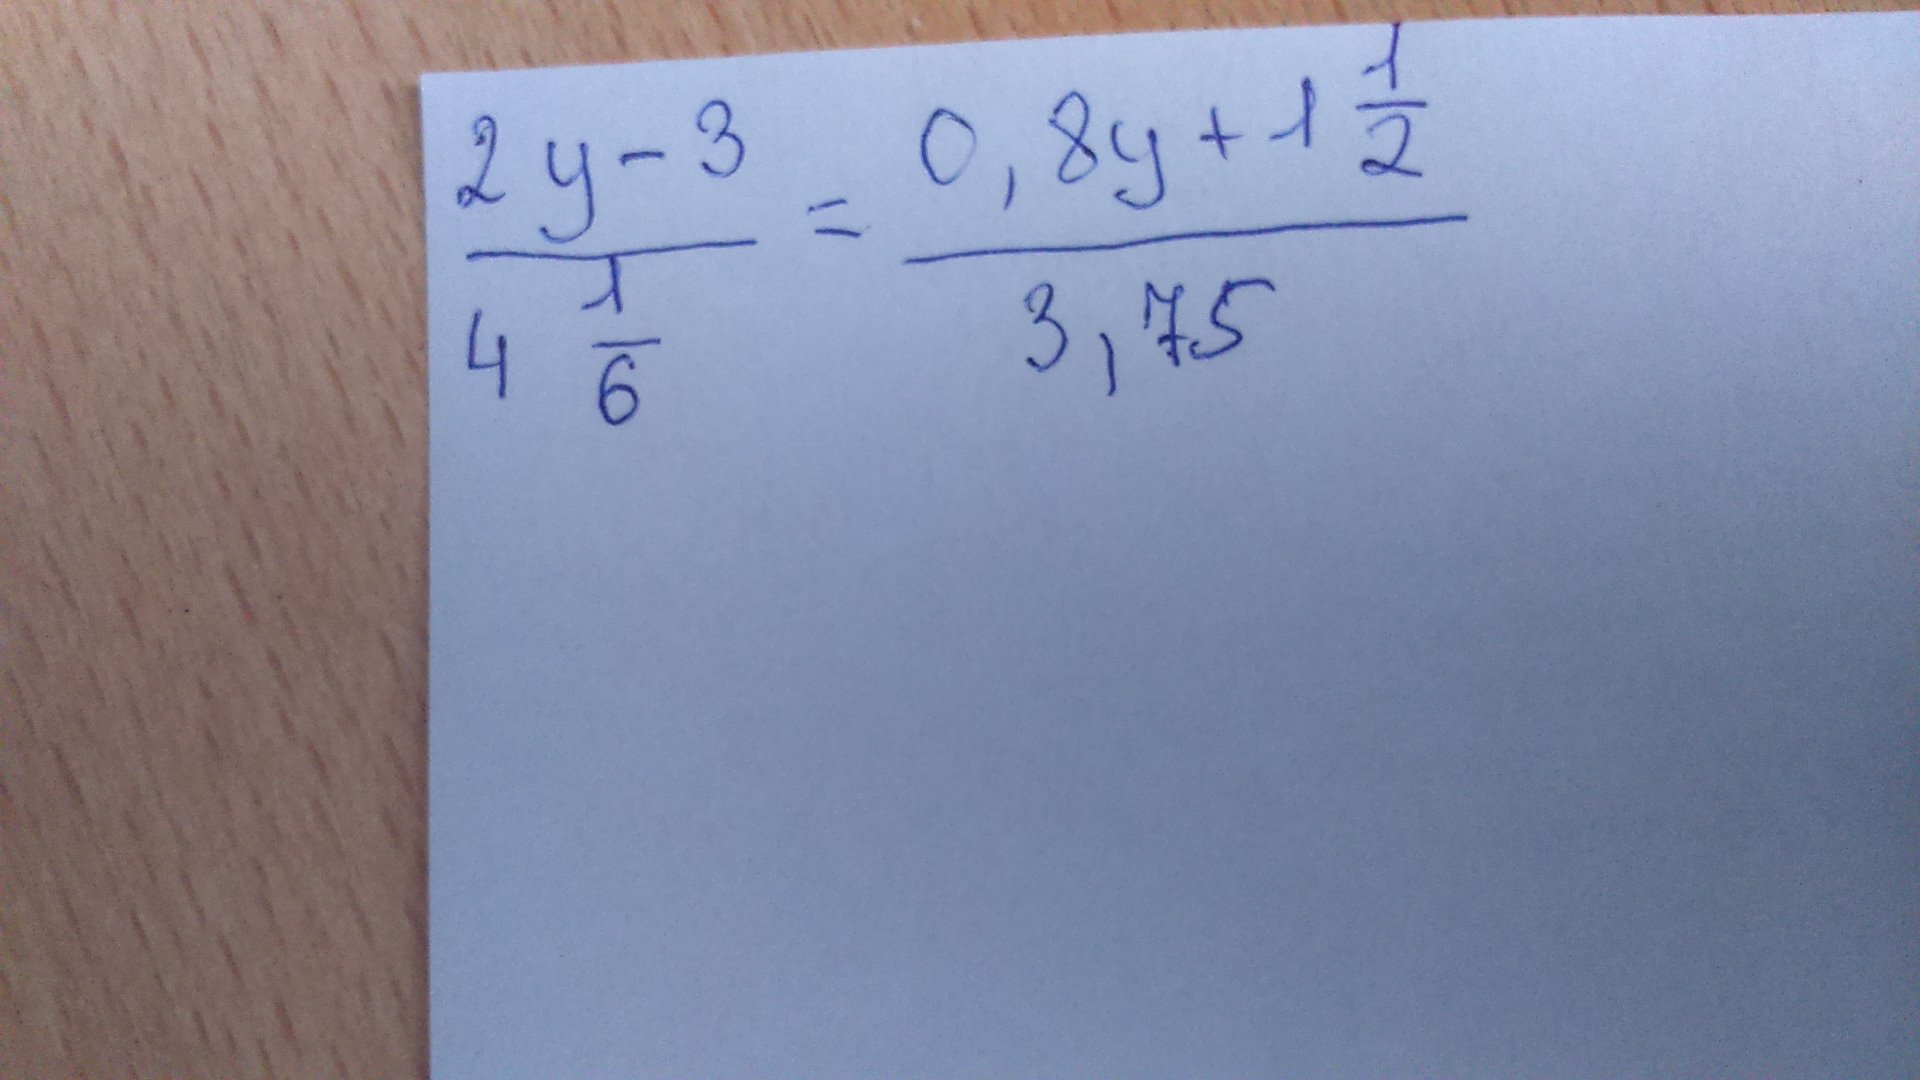 (2y-3)/(4 1/6) = (0,8y+1 1/2)/(3,75)